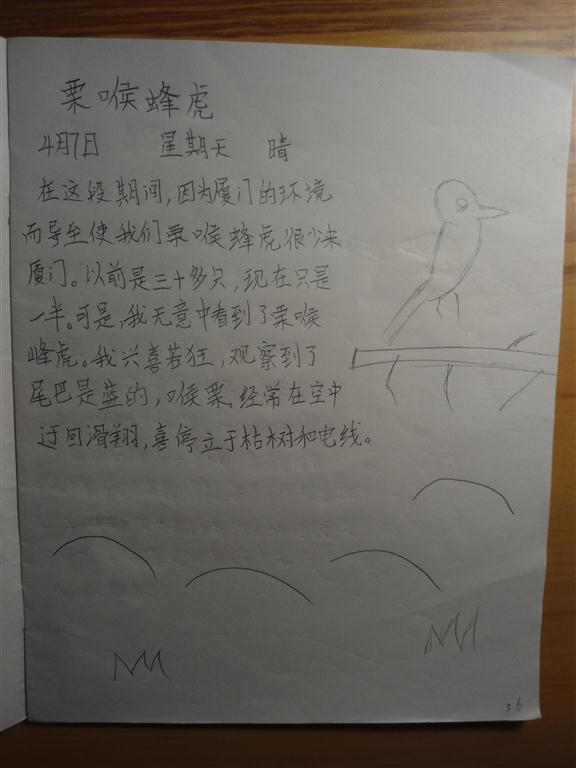 栗喉蜂虎
4月7日 星期天 晴
在这段期间,因为厦门的环境
而导至使我们栗喉蜂虎很少来
厦门。以前是三十多只,现在只是
一半。可是,我无意中看到了栗喉
峰虎。我兴喜若狂,观察到了
尾巴是蓝的,喉栗。经常在空中
迂回滑翔,喜停立于枯树和电线。
36